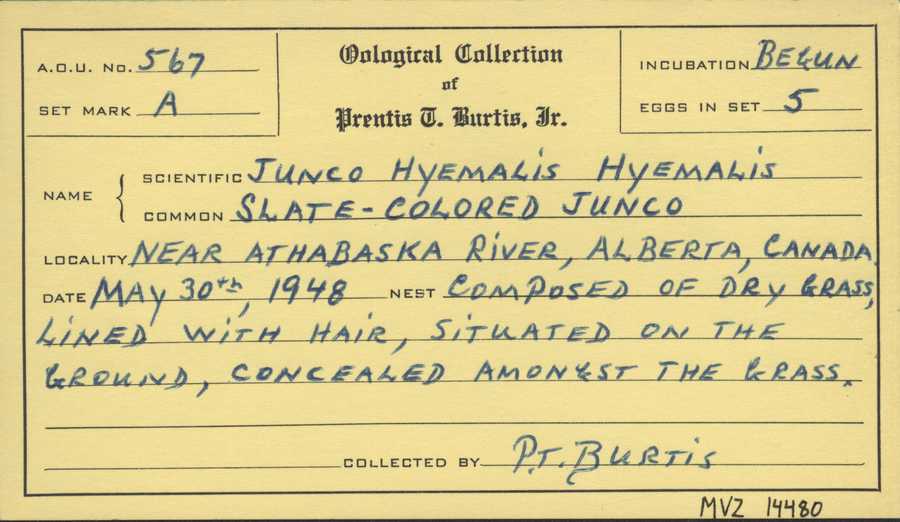 A.O.U. No. 567
SET MARK A
Oological Collection
of
Prentis T. Burtis, Jr.
INCUBATION BEGUN
EGGS IN SET 5
NAME { SCIENTIFIC JUNCO HYEMALIS HYEMALIS
COMMON SLATE-COLORED JUNCO
LOCALITY NEAR ATHABASKA RIVER, ALBERTA, CANADA.
DATE MAY 30th, 1948 NEST COMPOSED OF DRY GRASS,
LINED WITH HAIR, SITUATED ON THE
GROUND, CONCEALED AMONGST THE GRASS.
COLLECTED BY P.T. BURTIS
MVZ 14480